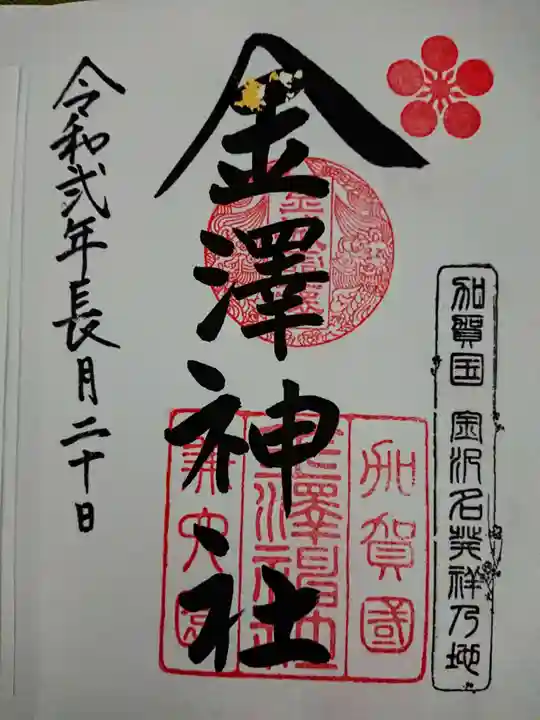 加賀国 金沢名発祥乃地
金澤神社
加賀國
金澤神社
兼六園
令和弐年長月二十日